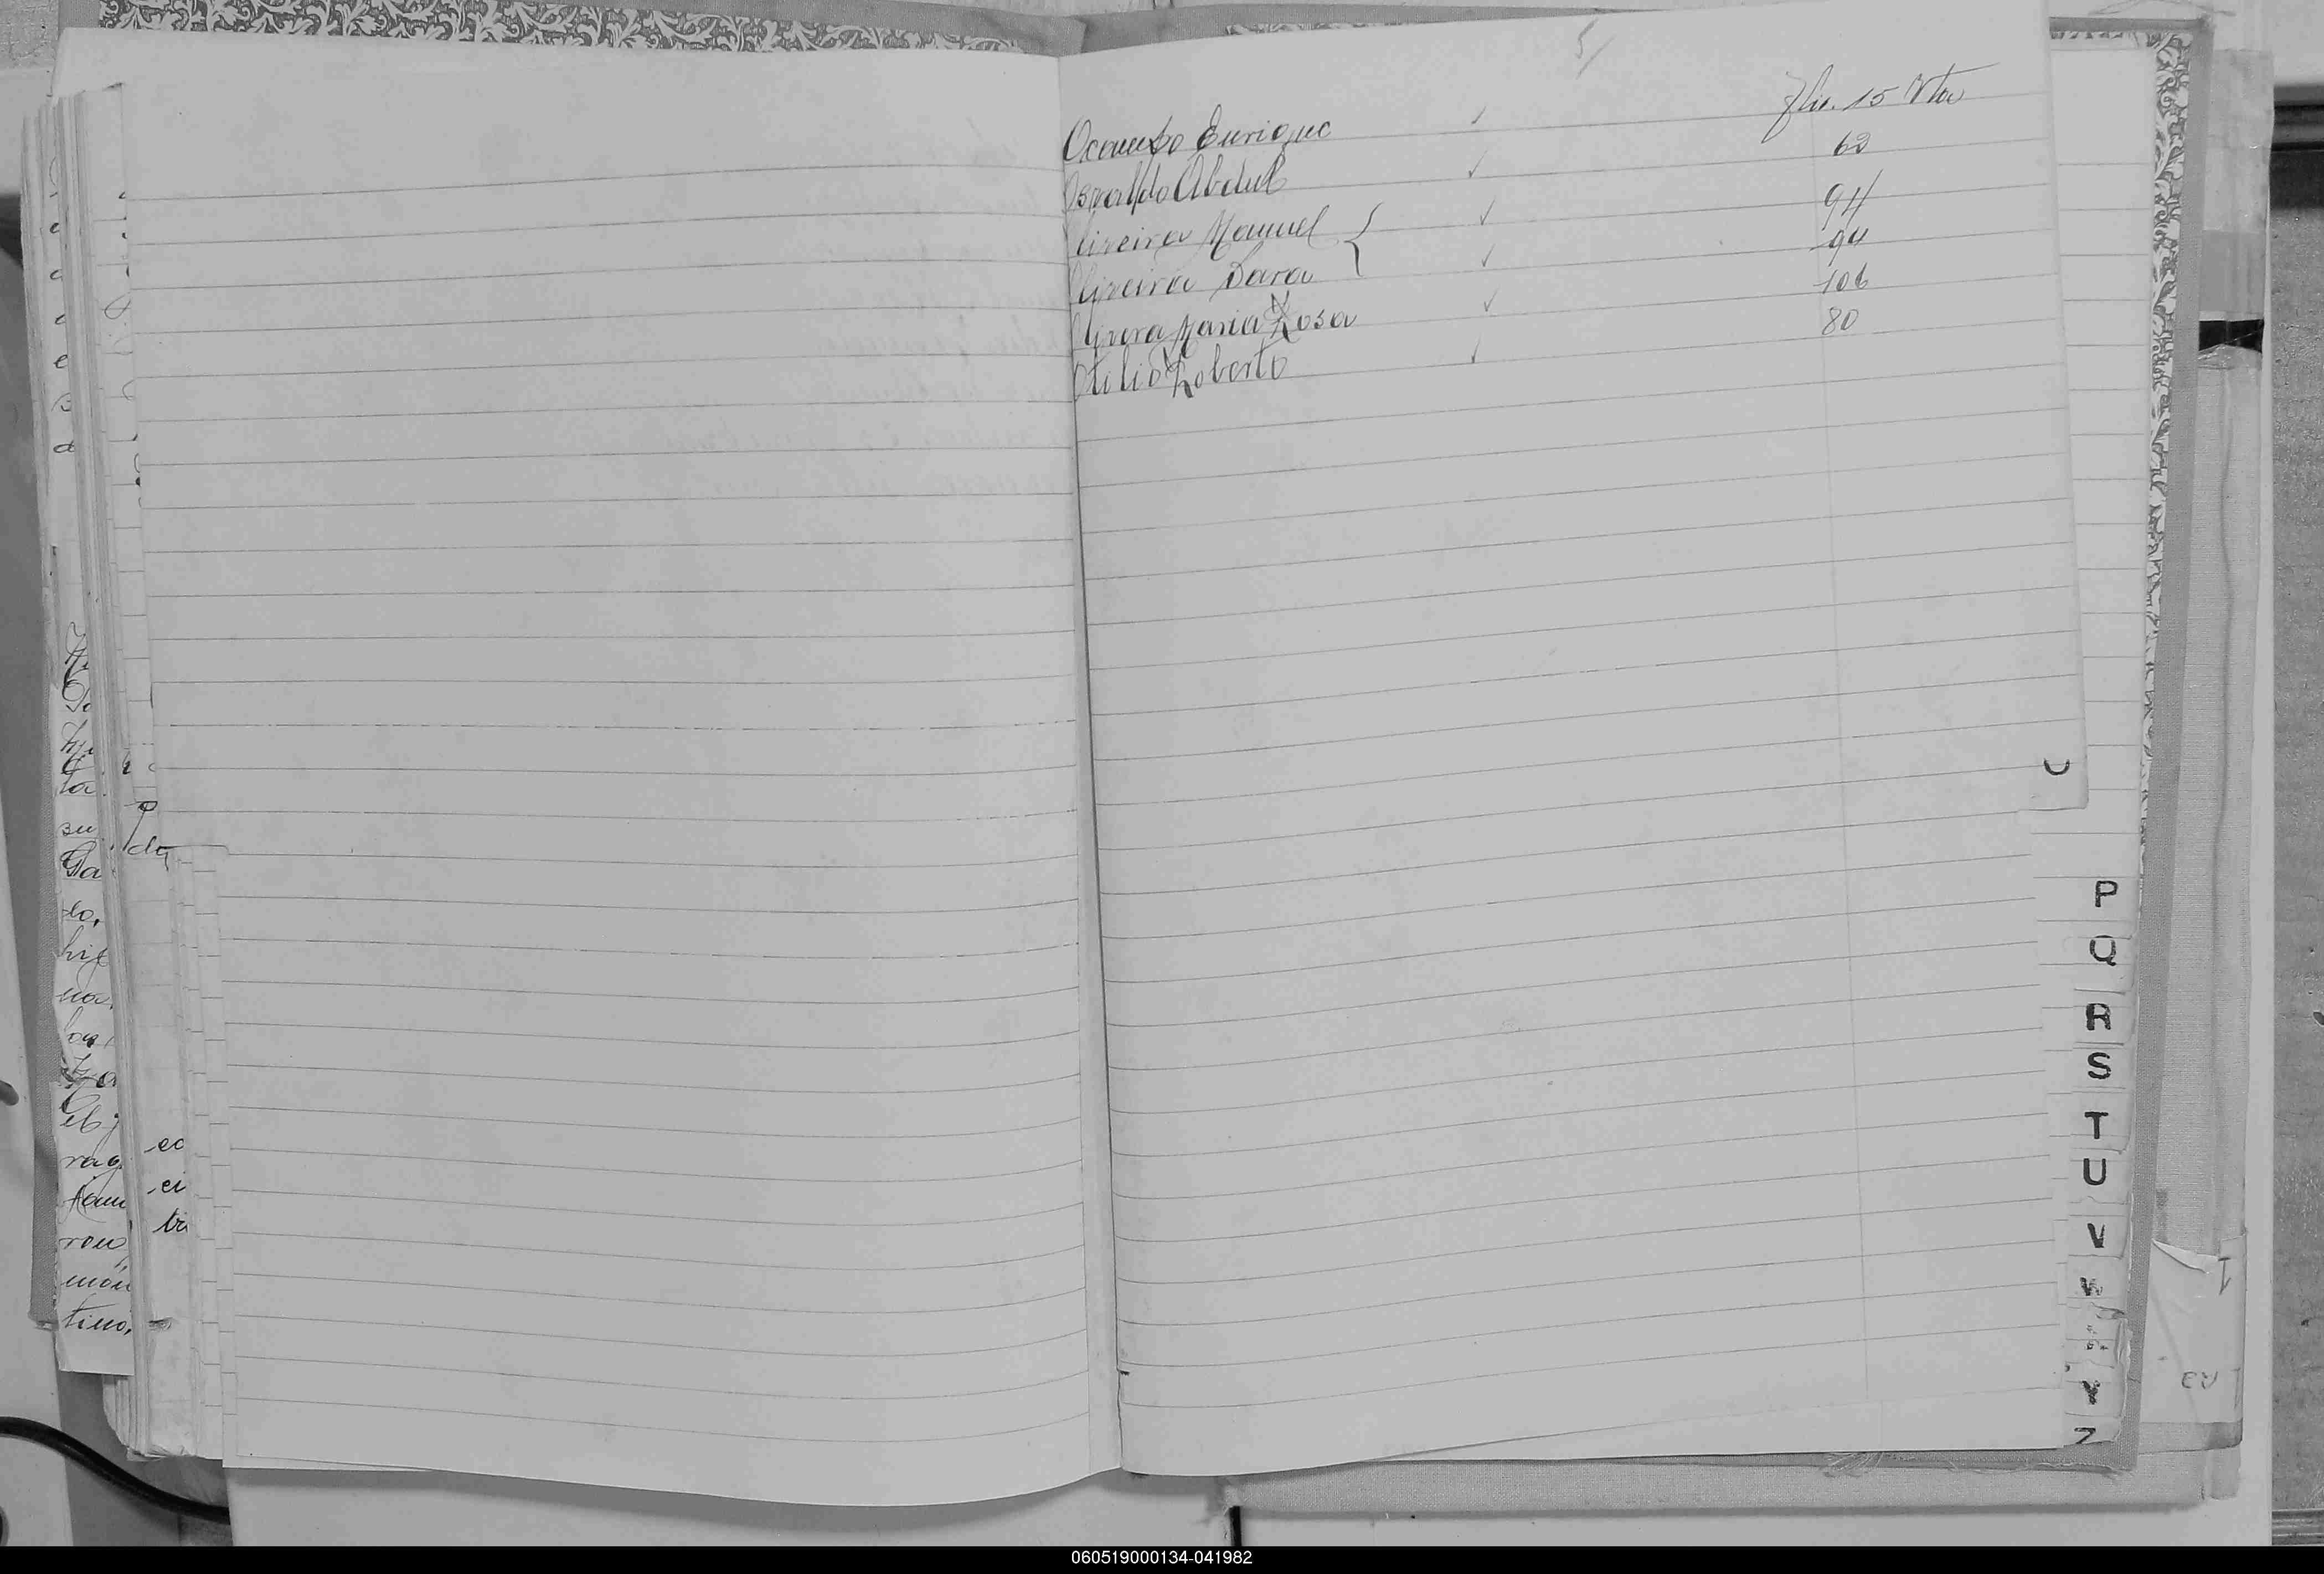 5/
Ocampo Enrique ✓ fho. 15 Vto
Osvaldo Abdul ✓ 62
Oliveira Manuel { ✓ 94
Oliveira Sara ✓ 94
Olivera Maria Rosa ✓ 106
Otilio Roberto ✓ 80
P
Q
R
S
T
U
V
W
Y
Z
060519000134-041982